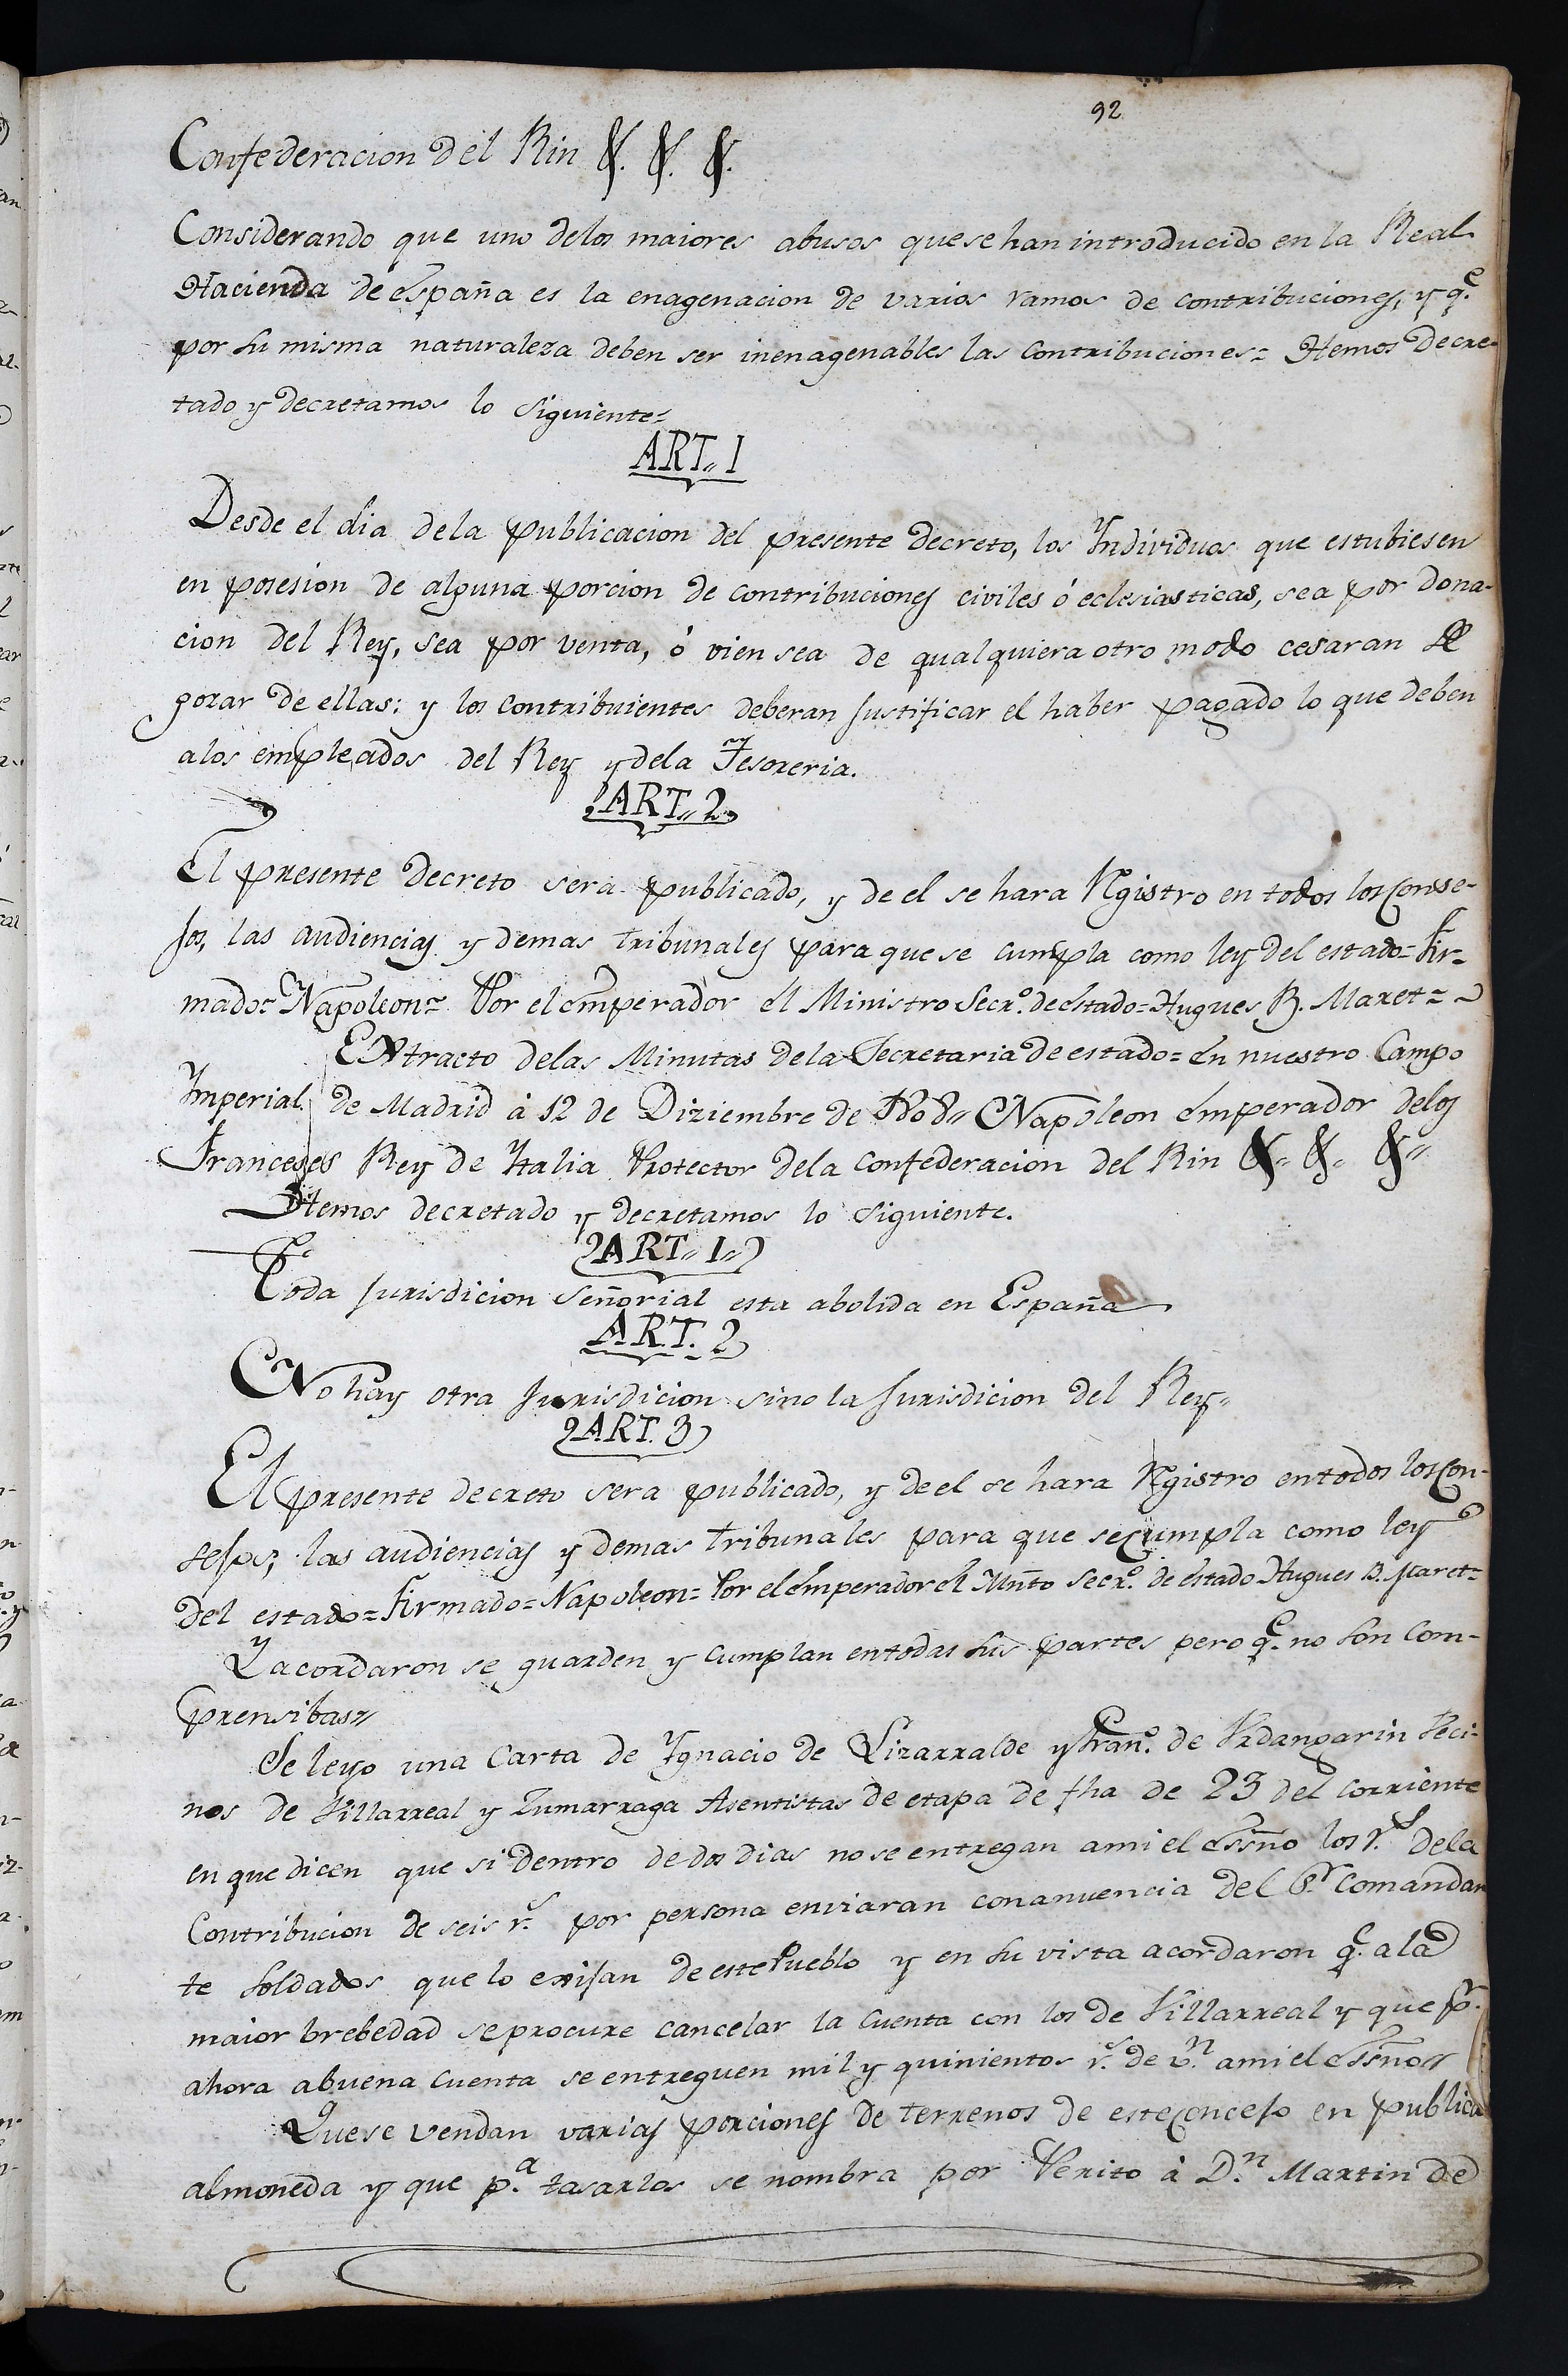 92
Confederacion del Rin &. &. &.
Considerando que uno delos maiores abusos que se han introducido en la Real
Hacienda de España es la enagenacion de varios ramos de contribuciones, y q.e
por su misma naturaleza deben ser inenagenables las contribuciones= Hemos Decre-
tado y decretamos lo siguiente=
ART,, I
Desde el dia dela publicacion del presente Decreto, los Individuos que estubiesen
en posesion de alguna porcion de contribuciones civiles ó eclesiasticas, sea por dona-
cion del Rey, sea por venta, ó vien sea de qualquiera otro modo cesaran de
gozar de ellas: y los contribuientes deberan justificar el haber pagado lo que deben
alos empleados del Rey y dela Tesoreria.
ART,, 2
El presente Decreto sera publicado, y de el se hara Rgistro en todos los conse-
jos, las audiencias y demas tribunales para que se cumpla como ley del estado= Fir-
mado= Napoleon= Por el emperador el Ministro Secr.o de estado= Hugues B. Maret=
Extracto delas Minutas dela Secretaria de estado= En nuestro Campo
Imperial de Madrid à 12 de Diziembre de 1808,, Napoleon emperador delos
Franceses Rey de Italia Protector dela confederacion del Rin &,, &,, &,,
Hemos decretado y decretamos lo siguiente.
ART,, I,,
Toda jurisdicion señorial esta abolida en España
ART. 2
No hay otra jurisdicion sino la jurisdicion del Rey=
ART. 3
El presente decreto sera publicado, y de el se hara Rgistro en todos los con-
sejos, las audiencias y demas tribunales para que se cumpla como ley
del estado= Firmado= Napoleon= Por el emperador el Mñto Secr.o de estado Hugues B. Maret=
Y acordaron se guarden y cumplan en todas sus partes pero q.e no son com-
prensibas,,
Se leyo una carta de Ygnacio de Lizarralde y Fran.o de Urdangarin veci-
nos de Villarreal y Zumarraga Asentistas de etapa de fha de 23 del corriente
en que dicen que si dentro de dos dias no se entregan ami el essño los r.s dela
Contribucion de seis r.s por persona enviaran con anuencia del S.r Comandan
te soldados que lo exijan de este Pueblo y en su vista acordaron q.e a la
maior brebedad se procure cancelar la cuenta con los de Villarreal y que p.r
ahora abuena cuenta se entreguen mil y quinientos r.s de v.n ami el essño,,
Que se vendan varias porciones de terrenos de este concejo en publica
almoneda y que p.a tasarlos se nombra por Perito à D.n Martin de